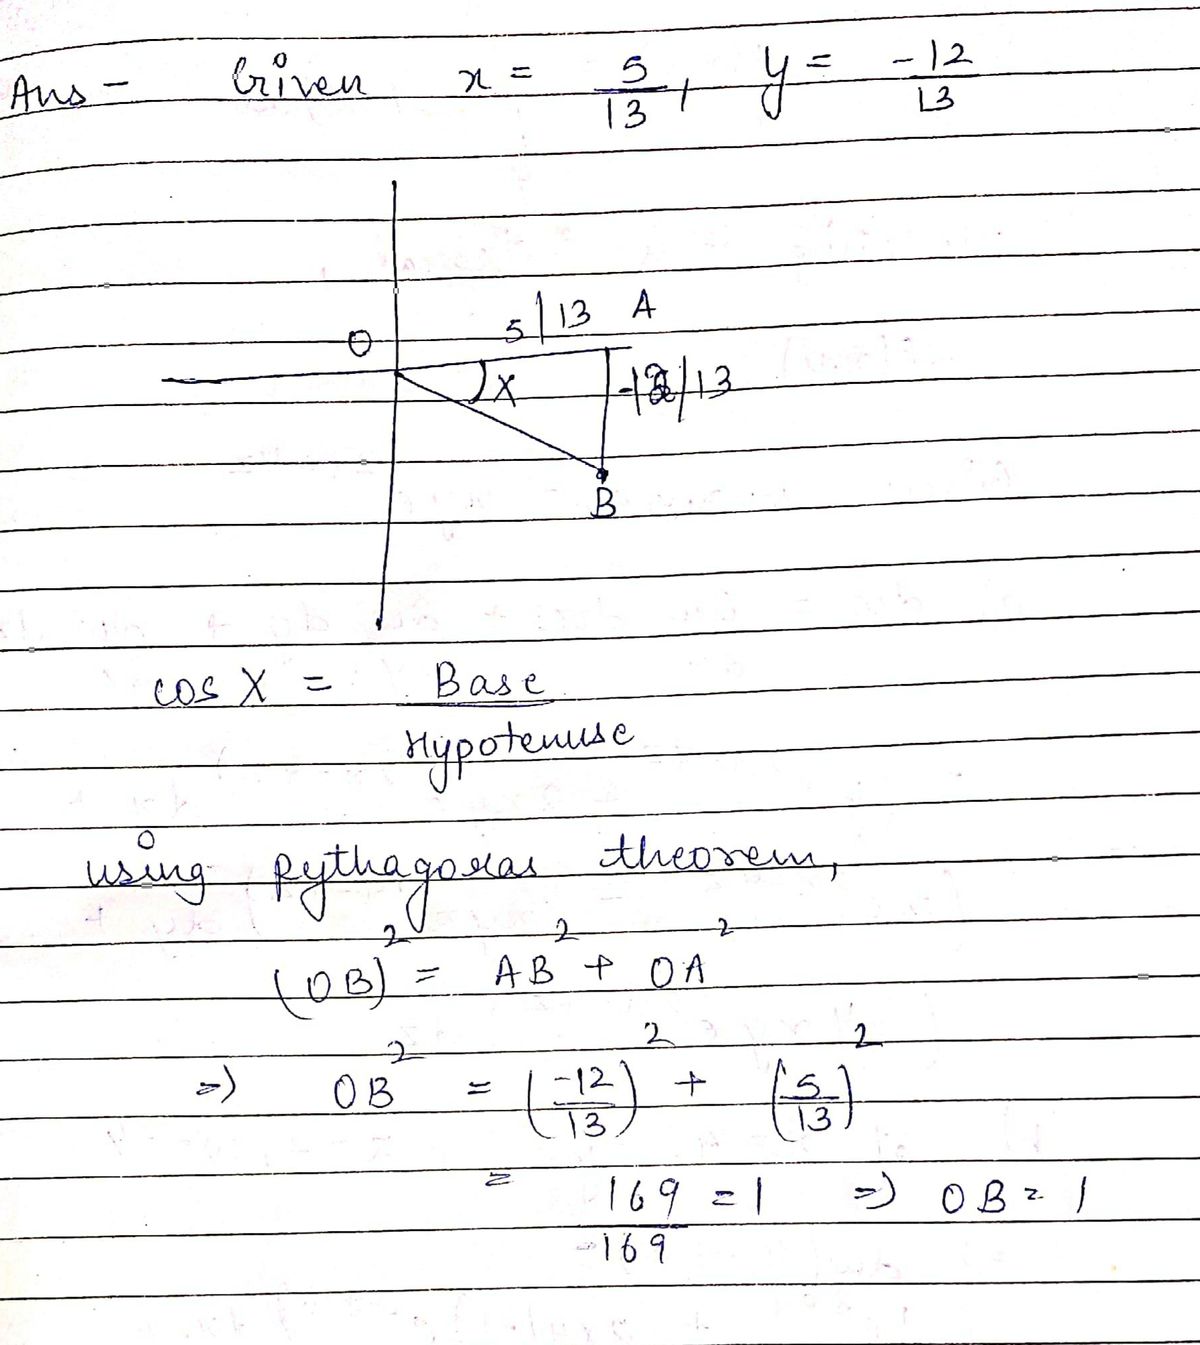 Ans - Given x = 5/13, y = -12/13
O 5/13 A
X -12/13
B
cos X = Base/Hypotenuse
using pythagoras theorem,
(OB)² = AB² + OA²
=) OB² = (-12/13)² + (5/13)²
= 169/169 = 1 =) OB = 1